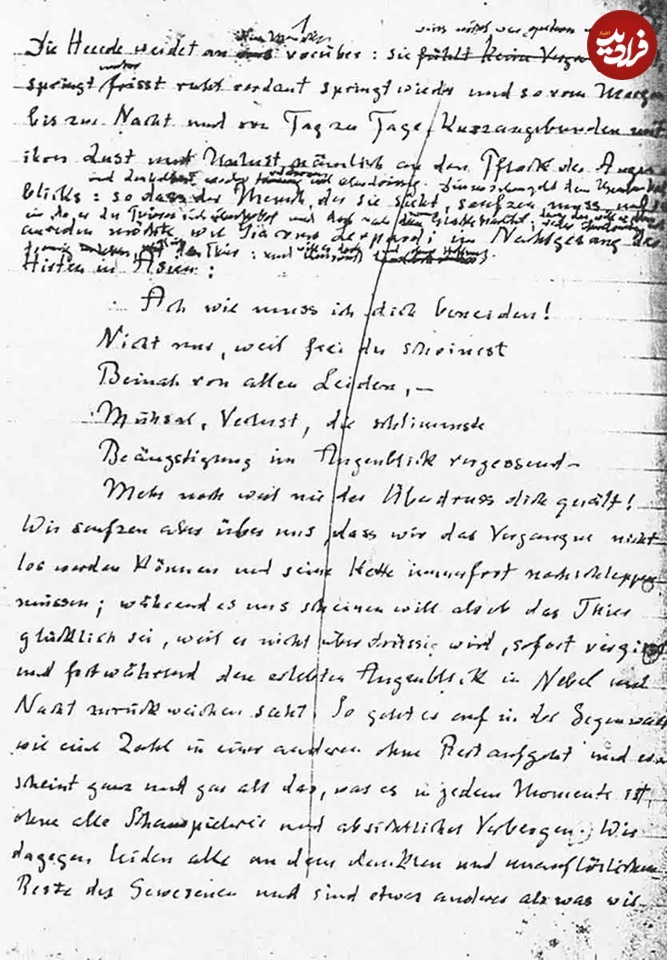 1
Die Heerde weidet an uns vorüber: sie fühlt keine Verga
springt frisst ruht verdaut springt wieder und so vom Morgen
bis zur Nacht und von Tag zu Tage, kurz angebunden mit
ihrer Lust und Unlust nämlich an den Pflock des Augen
blicks: so dass der Mensch, der sie sieht, seufzen muss und sie
anreden möchte, wie Giacomo Leopardi im Nachtgesang des
Hirten in Asien:
Ach wie muss ich dich beneiden!
Nicht nur, weil frei du scheinest
Beinah von allen Leiden, —
Mühsal, Verlust, die schlimmste
Beängstigung im Augenblick vergessend —
Mehr noch weil nie der Überdruss dich quält!
Wir seufzen aber über uns, dass wir das Vergangne nicht
los werden können und seine Kette immerfort nachschleppen
müssen; während es uns scheinen will als ob das Thier
glücklich sei, weil es nicht überdrüssig wird, sofort vergisst
und fortwährend den erlebten Augenblick in Nebel und
Nacht zurückweichen sieht. So geht es auf in der Gegenwart
wie eine Zahl in einer anderen ohne Rest aufgeht und es
scheint ganz und gar als das, was es in jedem Momente ist
ohne alle Schauspielerei und absichtliches Verbergen. Wir
dagegen leiden alle an dem dunklen und unauflöslichen
Reste des Gewesenen und sind etwas anderes als was wir
فرادید